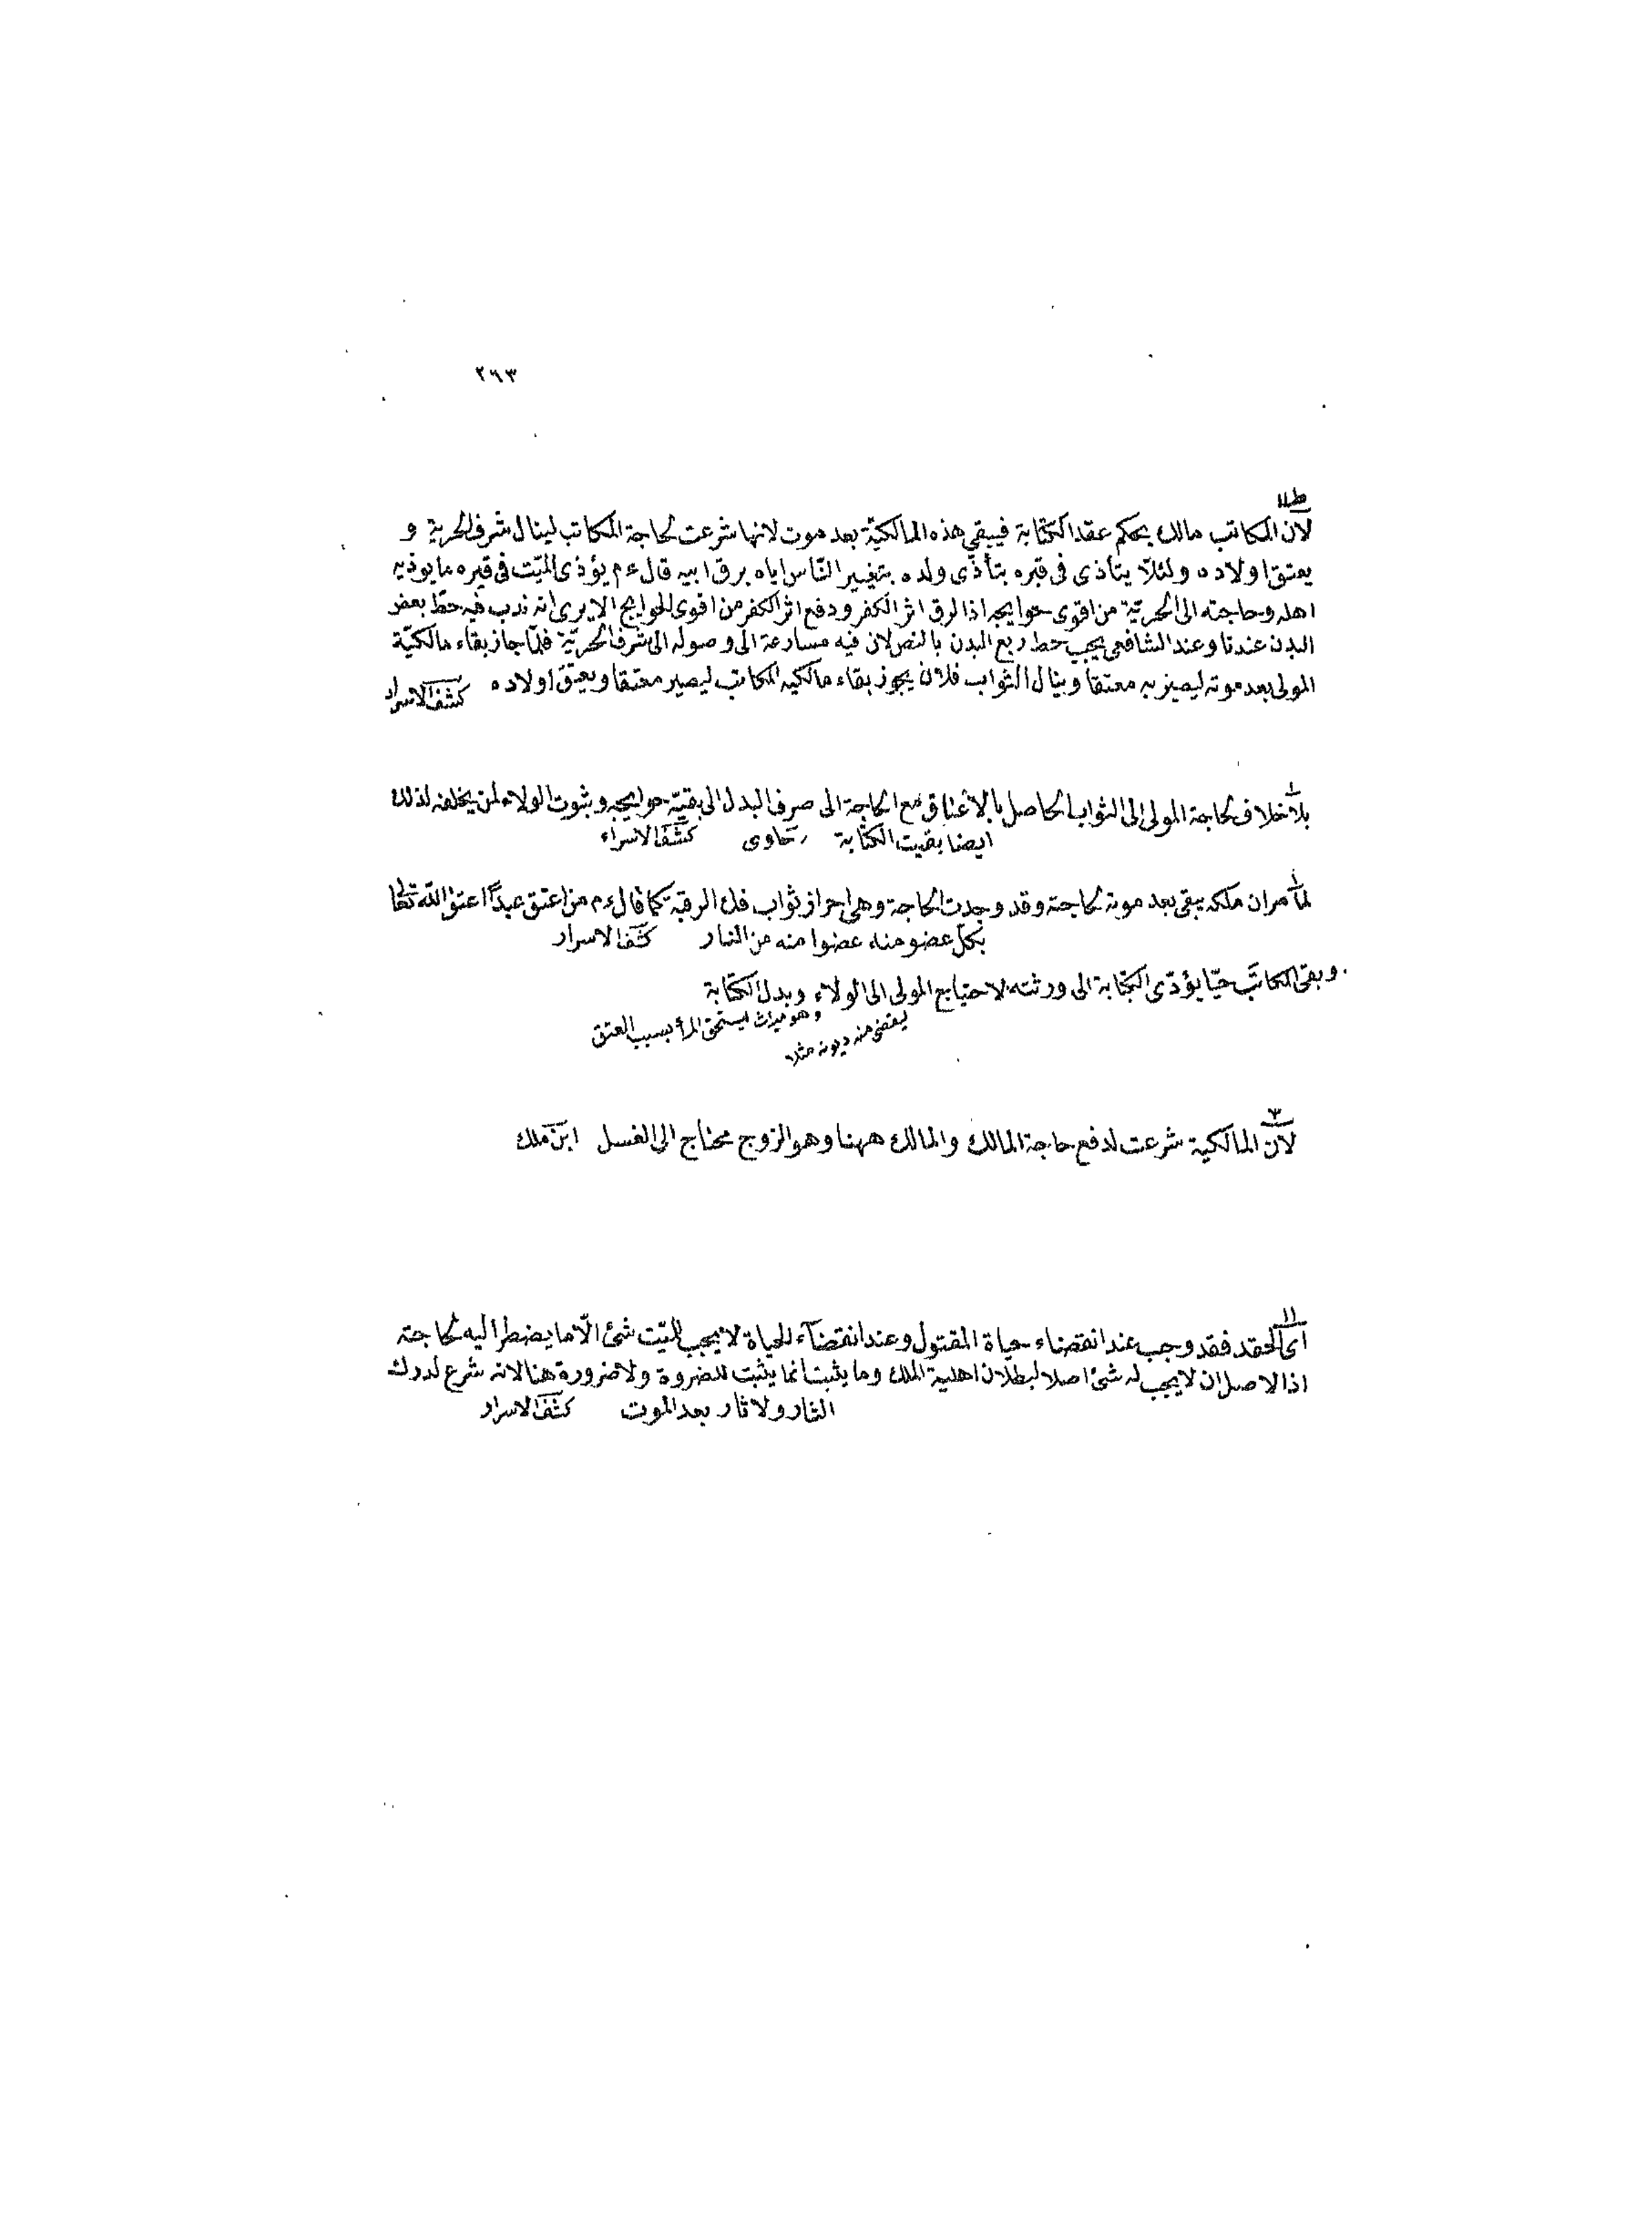 ٢٦٣
لان المكاتب مالك بحكم عقد الكتابة فيبقى هذه المالكية بعد موت لانها شرعت لحاجة المكاتب لينال شرف الحرية و
يعتق اولاده ولئلا يتأذى فى قبره بتأذى ولده بتغيير الناس اياه برق ابيه قال ءم يؤذى الميت فى قبره ما يوذيه
اهله وحاجته الى الحرية من اقوى حوايجه اذ الرق اثر الكفر ودفع اثر الكفر من اقوى الحوايج الا يرى انه ندب فيه حط بعض
البدن عندنا وعند الشافعى يجب حط ربع البدن بالنص لان فيه مسارعة الى وصوله الى شرف الحرية فلما جاز بقاء مالكية
المولى بعد موته ليصير به معتقا وينال الثواب فلان يجوز بقاء مالكيه المكاتب ليصير معتقا ويعتق اولاده كشف الاسرار
بلا خلاف لحاجة المولى الى الثواب الحاصل بالاعتاق مع الحاجة الى صرف البدل الى بقية حوايجه وثبوت الولاء لمن يخلفه لذلك
ايضا بقيت الكتابة كشف الاسرار
لما مر ان ملكه يبقى بعد موته لحاجته وقد وجدت الحاجة وهى احراز ثواب فك الرقبة كما قال ءم من اعتق عبدا اعتق الله تعالى
بكل عضو منه عضوا منه من النار كشف الاسرار
وبقى المكاتب حيا يؤدى الكتابة الى ورثته لاحتياج المولى الى الولاء وبدل الكتابة
وهو ميراث يستحق المرأ بسبب العتق
ليقضى منه ديونه مثلا
٣
لان المالكية شرعت لدفع حاجة المالك والمالك ههنا وهو الزوج محتاج الى الغسل ابن ملك
١١
اى الحقد فقد وجب عند انقضاء حياة المقتول وعند انقضاء الحياة لا يجب للميت شئ الا ما يضطر اليه لحاجته
اذ الاصل ان لا يجب له شئ اصلا لبطلان اهلية الملك وما يثبت انما يثبت للضروة ولا ضرورة هنا لانه شرع لدرك
الثار ولا ثار بعد الموت كشف الاسرار